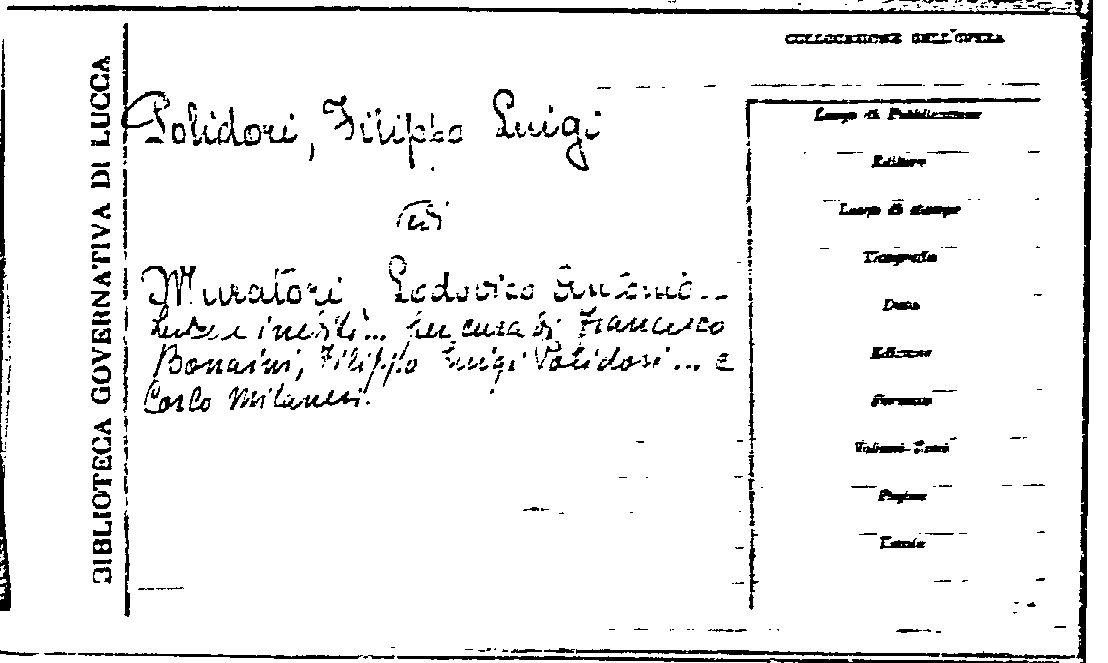 BIBLIOTECA GOVERNATIVA DI LUCCA
COLLOCAZIONE DELL'OPERA
Polidori, Filippo Luigi
vedi
Muratori, Lodovico Antonio...
Lettere inedite... per cura di Francesco
Bonaini, Filippo Luigi Polidori... e
Carlo Milanesi.
Luogo di Pubblicazione
Editore
Luogo di stampa
Tipografia
Data
Edizione
Formato
Volumi-Tomi
Pagine
Tavole